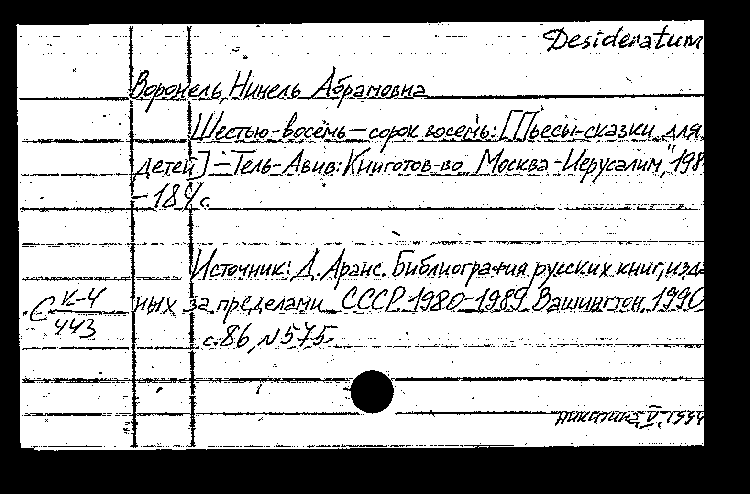 Desideratum
Воронель, Нинель Абрамовна
Шестью-восемь — сорок восемь: [Пьесы-сказки для
детей] – Тель-Авив: Книготов-во "Москва-Иерусалим", 198
– 184 с.
Источник: Д. Аранс. Библиография русских книг, изда
нных за пределами СССР 1980-1989. Вашингтон, 1990
с. 86, N 575.
Є К-4
443
V. 1994